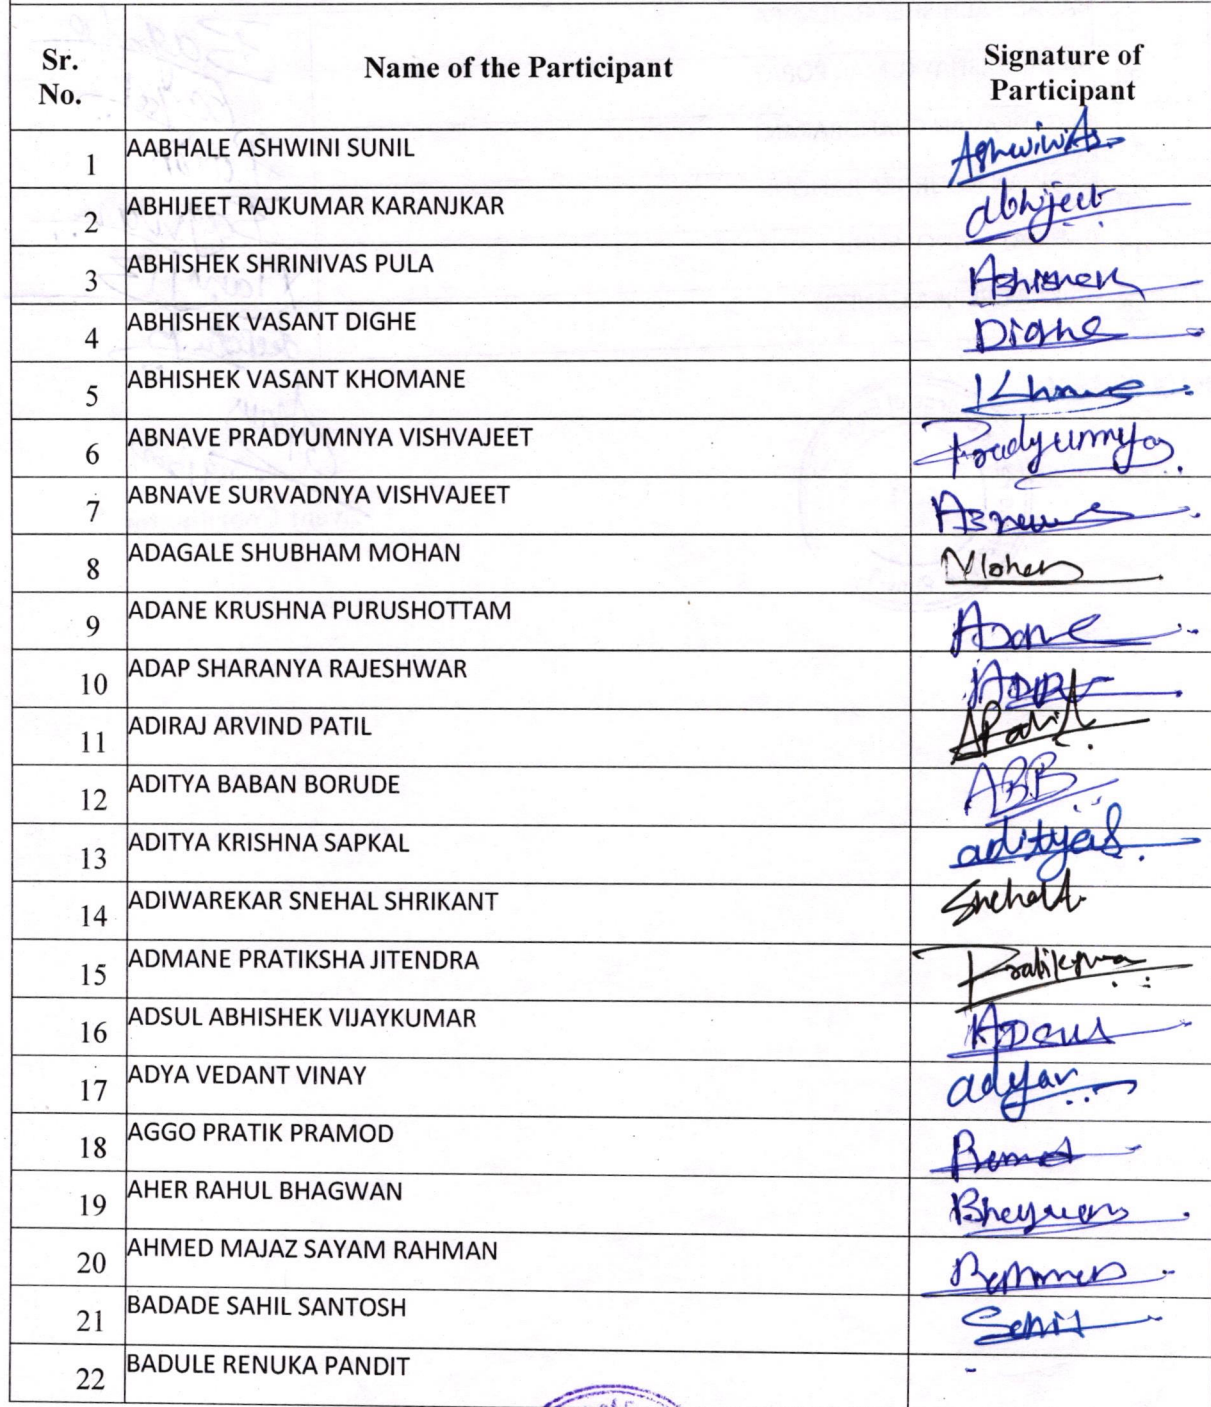 Sr. No. Name of the Participant Signature of Participant
1 AABHALE ASHWINI SUNIL AshwiniAs
2 ABHIJEET RAJKUMAR KARANJKAR abhijeet
3 ABHISHEK SHRINIVAS PULA Abhishek
4 ABHISHEK VASANT DIGHE Dighe
5 ABHISHEK VASANT KHOMANE
6 ABNAVE PRADYUMNYA VISHVAJEET Pradyumnya
7 ABNAVE SURVADNYA VISHVAJEET
8 ADAGALE SHUBHAM MOHAN Mohan
9 ADANE KRUSHNA PURUSHOTTAM Adane
10 ADAP SHARANYA RAJESHWAR
11 ADIRAJ ARVIND PATIL APatil
12 ADITYA BABAN BORUDE ABB
13 ADITYA KRISHNA SAPKAL adityaS
14 ADIWAREKAR SNEHAL SHRIKANT SnehalA
15 ADMANE PRATIKSHA JITENDRA Pratiksha
16 ADSUL ABHISHEK VIJAYKUMAR Adsul
17 ADYA VEDANT VINAY adyav
18 AGGO PRATIK PRAMOD
19 AHER RAHUL BHAGWAN Bhagwan
20 AHMED MAJAZ SAYAM RAHMAN
21 BADADE SAHIL SANTOSH Sahil
22 BADULE RENUKA PANDIT -